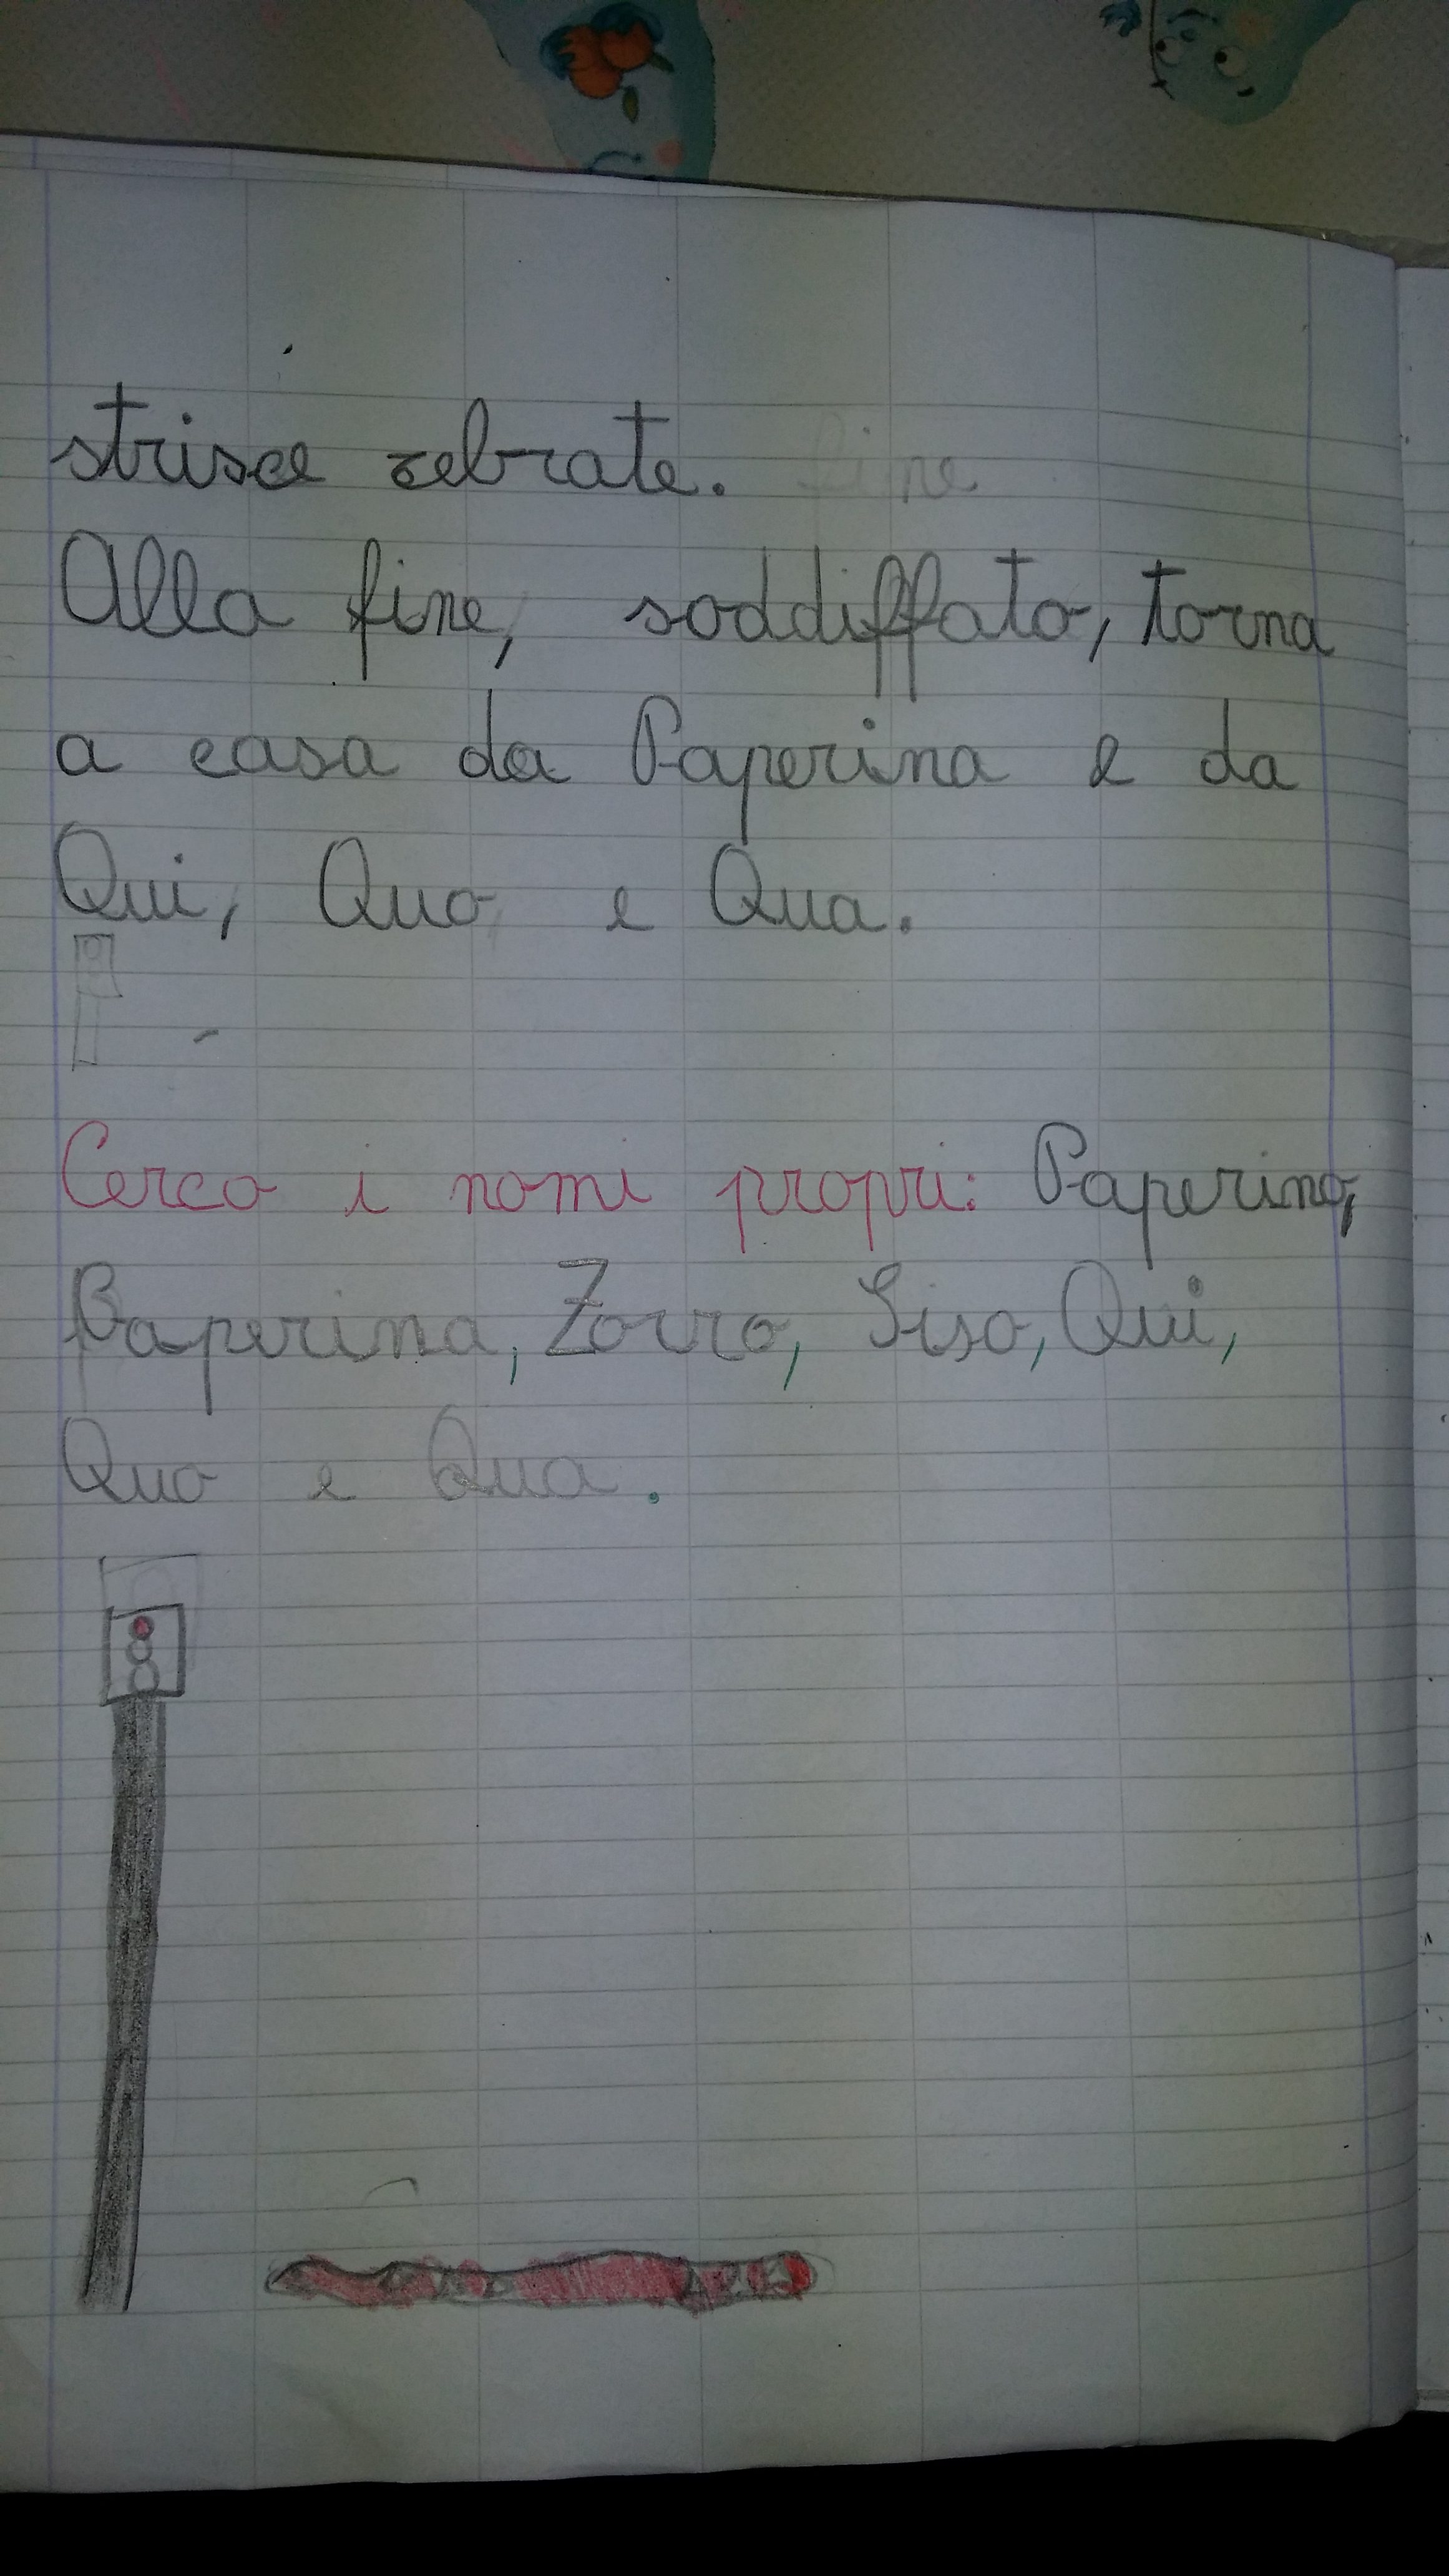 strisce zebrate. fine
Alla fine, soddiffato, torna
a casa da Paperina e da
Qui, Quo e Qua.
Cerco i nomi propri: Paperino,
Paperina, Zorro, Siso, Qui,
Quo e Qua.